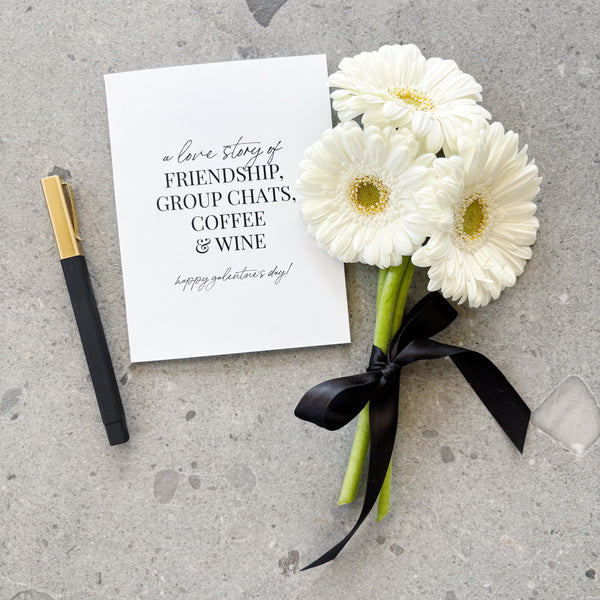 a love story of
FRIENDSHIP,
GROUP CHATS,
COFFEE
& WINE
happy galentine's day!